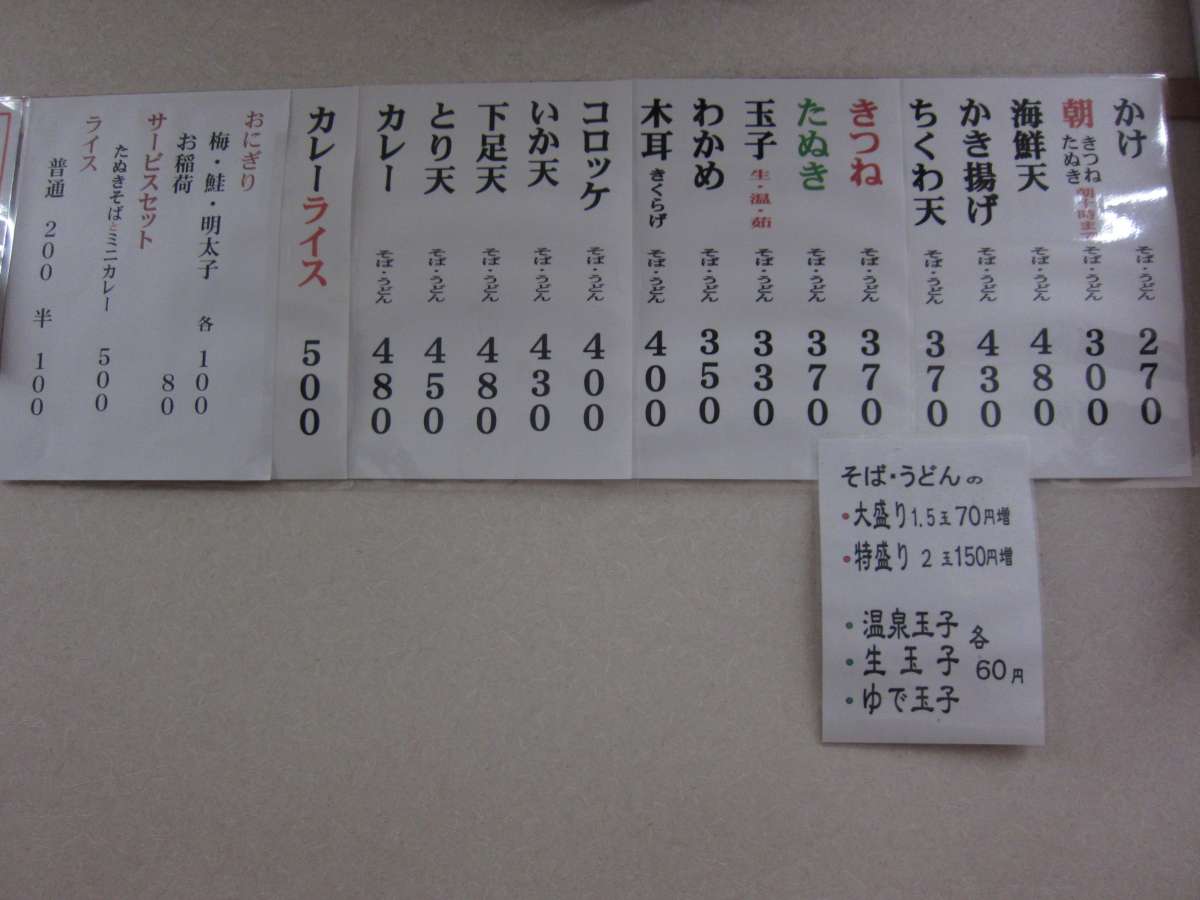 かけ そば・うどん 270
朝 きつね たぬき 朝十時まで そば・うどん 300
海鮮天 そば・うどん 480
かき揚げ そば・うどん 430
ちくわ天 そば・うどん 370
きつね そば・うどん 370
たぬき そば・うどん 370
玉子 生・温・茹 そば・うどん 330
わかめ そば・うどん 350
木耳 きくらげ そば・うどん 400
コロッケ そば・うどん 400
いか天 そば・うどん 430
下足天 そば・うどん 480
とり天 そば・うどん 450
カレー そば・うどん 480
カレーライス 500
おにぎり
梅・鮭・明太子 各 100
お稲荷 80
サービスセット
たぬきそばとミニカレー 500
ライス
普通 200 半 100
そば・うどんの
・大盛り1.5玉70円増
・特盛り 2 玉150円増
・温泉玉子
・生玉子
・ゆで玉子
各60円